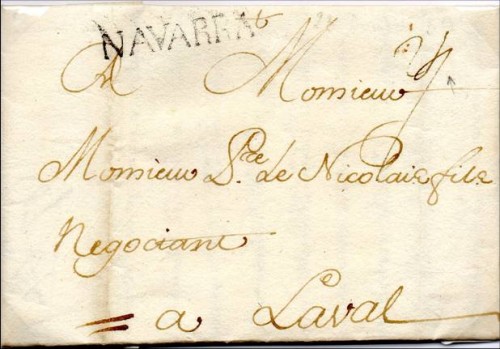 NAVARRA
A Monsieur
Monsieur P.re Le Nicolais fils
Negociant
a Laval